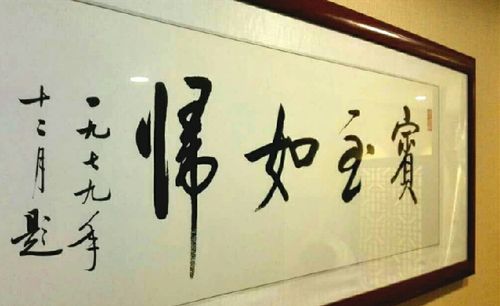 賓至如歸
一九七九年
十二月題